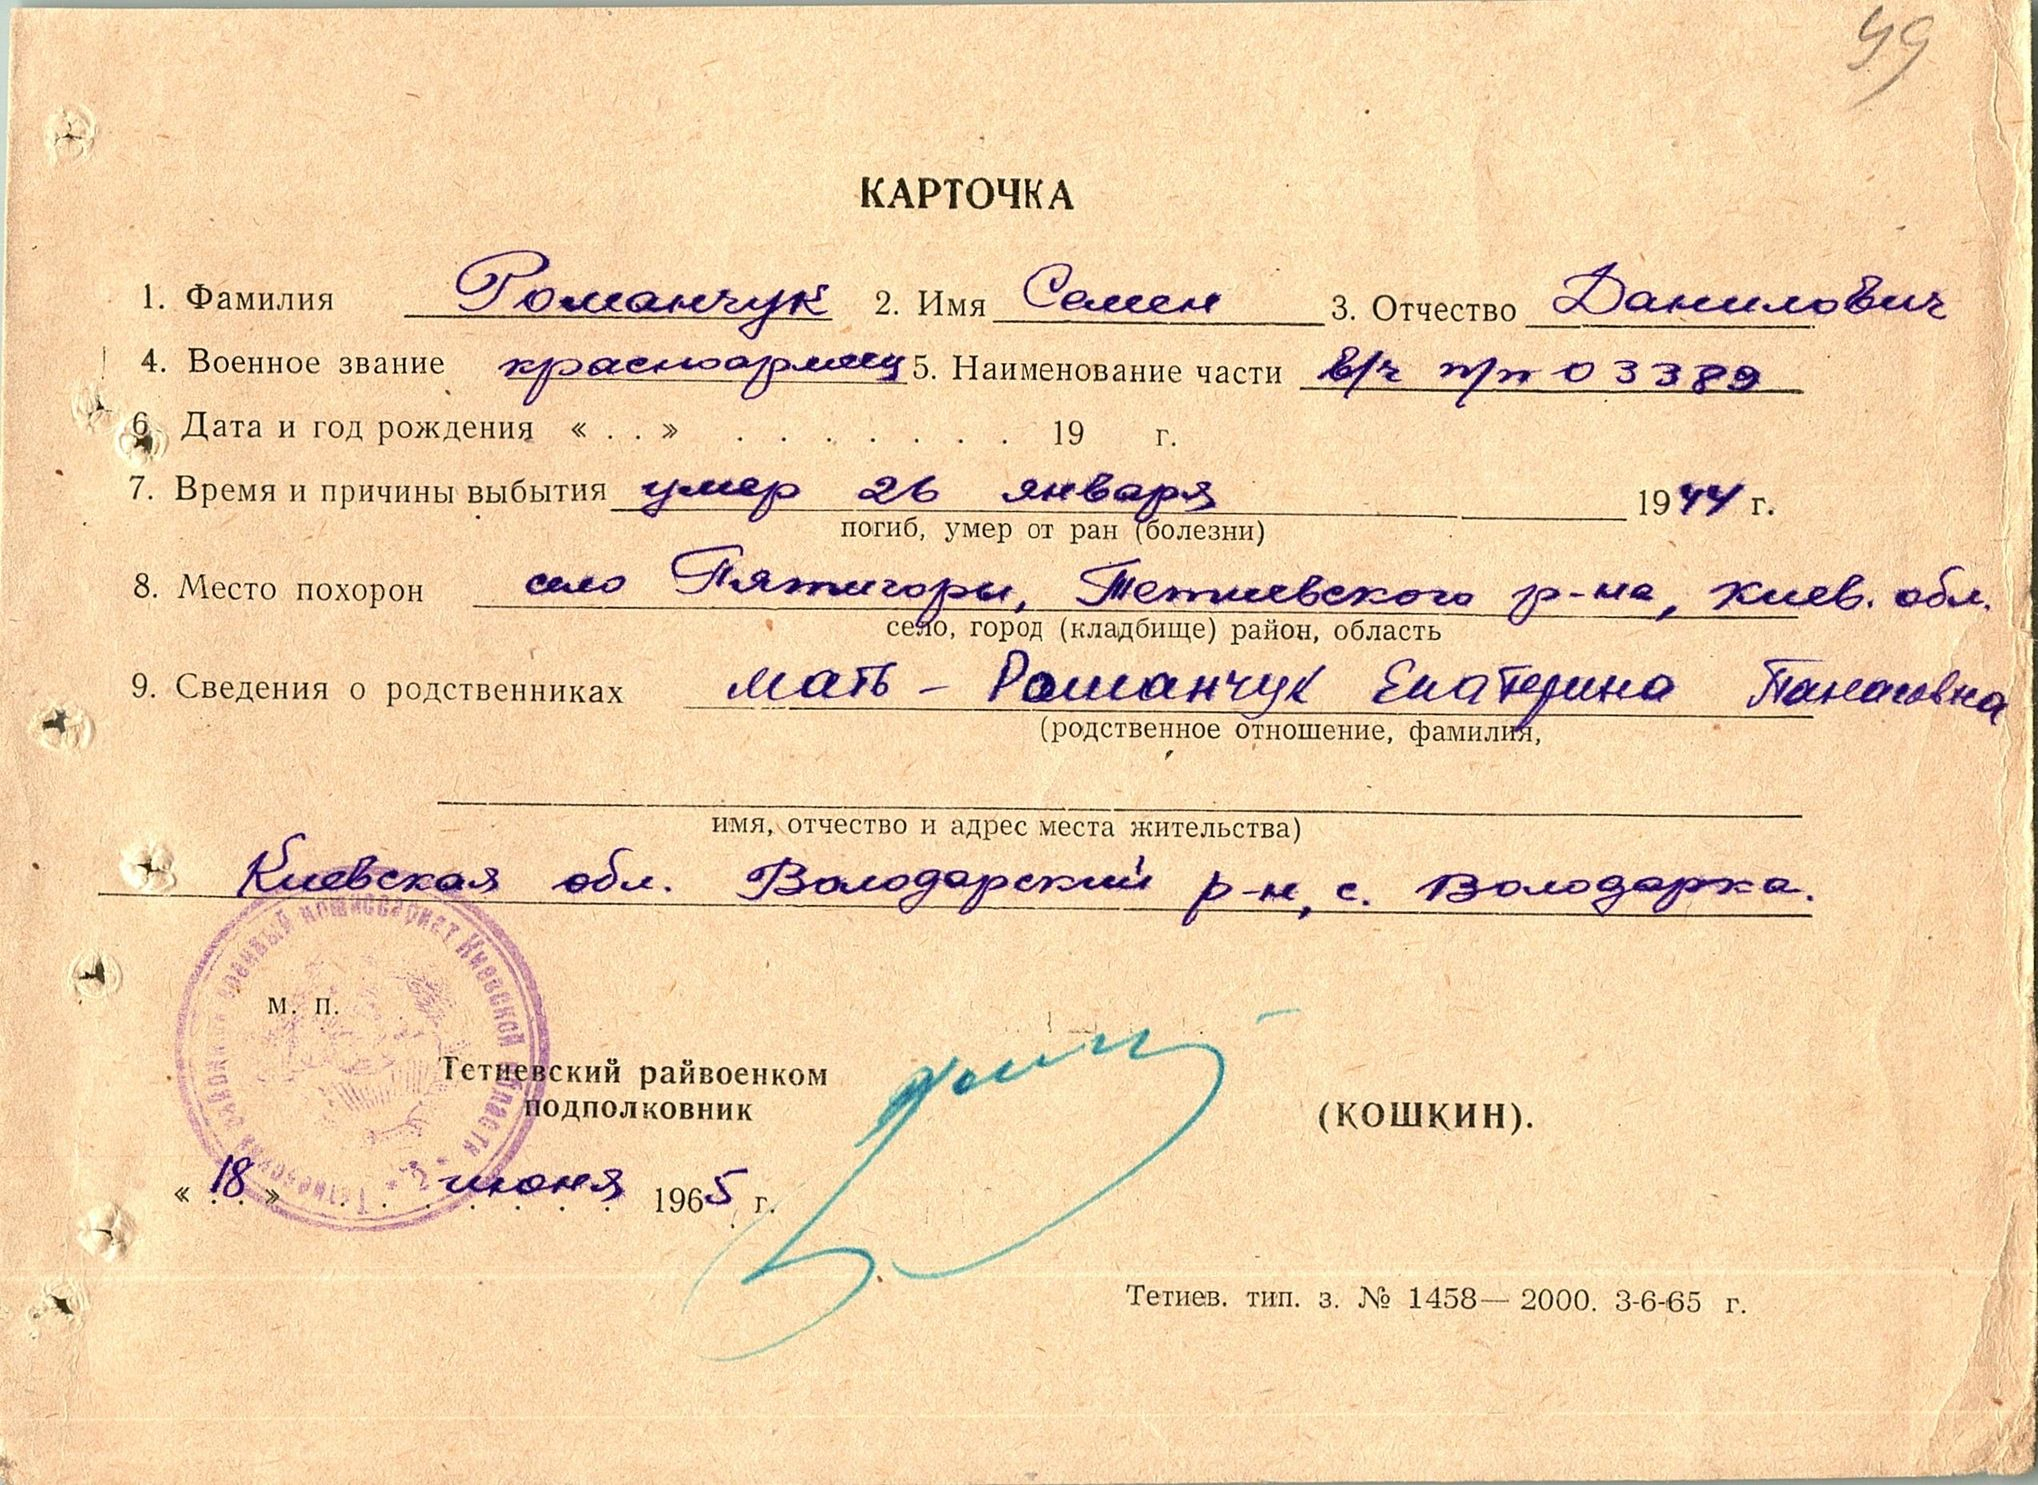 49
КАРТОЧКА
1. Фамилия Романчук 2. Имя Семен 3. Отчество Данилович
4. Военное звание красноармеец 5. Наименование части в/ч п/п 03389
6. Дата и год рождения « . . » . . . . . . . 19 г.
7. Время и причины выбытия умер 26 января 1944 г.
погиб, умер от ран (болезни)
8. Место похорон село Пятигоры, Тетиевского р-на, Киев. обл.
село, город (кладбище) район, область
9. Сведения о родственниках мать - Романчук Екатерина Панасовна
(родственное отношение, фамилия,
имя, отчество и адрес места жительства)
Киевская обл. Володарский р-н, с. Володарка.
Тетиевский районный военный комиссариат Киевской области
М. П.
Тетиевский райвоенком
подполковник (КОШКИН).
« 18 » июня 1965 г.
Тетиев. тип. з. № 1458— 2000. 3-6-65 г.